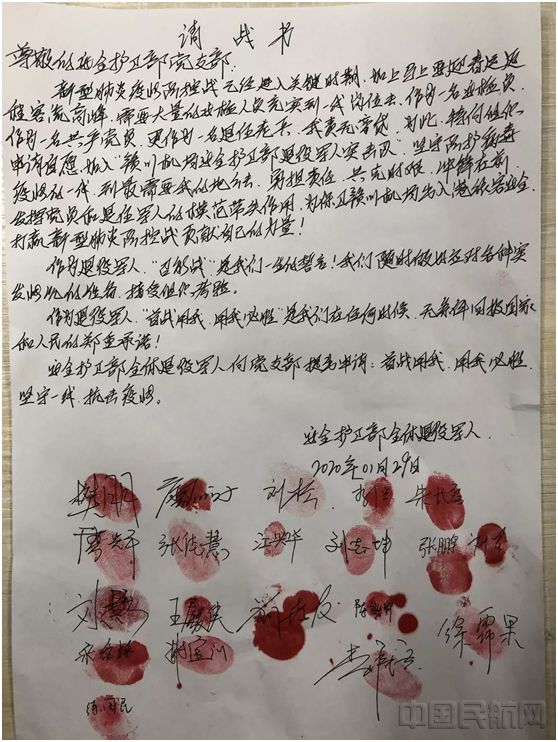 请战书
尊敬的安全护卫部党支部:
新型肺炎疫情防控战已经进入关键时期,加上马上要迎春运返
程客流高峰,需要大量的安检人员充实到一线岗位去,作为一名安检员,
作为一名共产党员,更作为一名退伍老兵,我责无旁贷,对此,特向组织
申请自愿加入“赣州机场安全护卫部退役军人突击队”,坚守防护病毒
疫情的一线,到最需要我的地方去,勇担责任,共克时艰,冲锋在前,
发挥党员和退伍军人的模范带头作用,为保卫赣州机场出入港旅客安全,
打赢新型肺炎防控战贡献自己的力量!
作为退役军人,“召必战”是我们一生的誓言!我们随时做好应对各种突
发情况的准备,接受组织考验。
作为退役军人,“若战用我,用我必胜”是我们在任何时候,无条件回报国家
和人民的郑重承诺!
安全护卫部全体退役军人向党支部提出申请:若战用我,用我必胜,
坚守一线,抗击疫情。
安全护卫部全体退役军人
2020年01月29日
刘松 朱长磊
张德慧 汪兴华 刘志坤 张鹏
刘慧
徐霈果
中国民航网